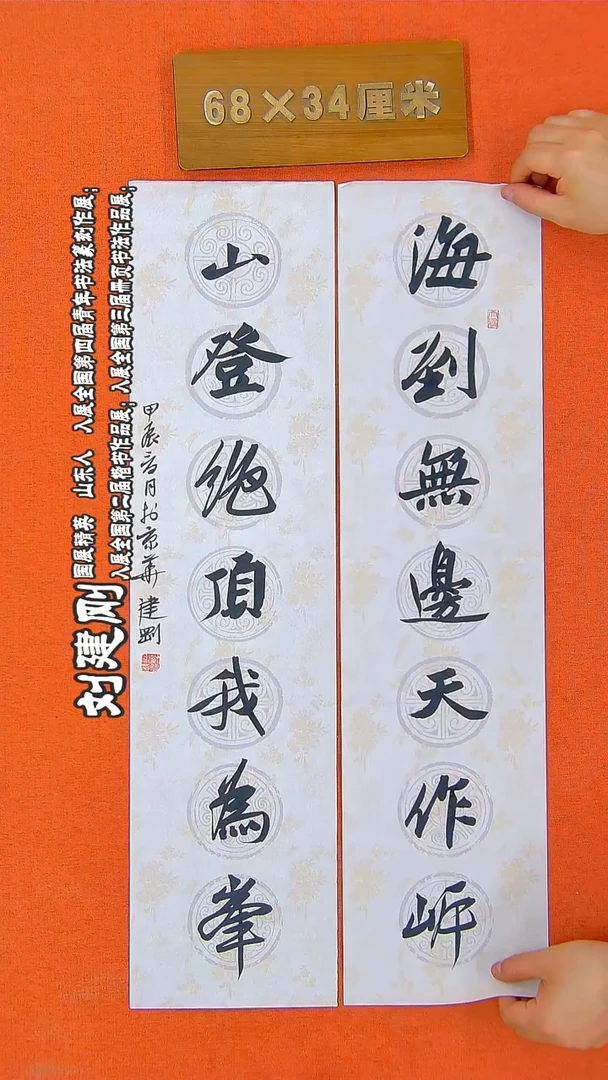 68×34厘米
海到無邊天作岸
山登絶頂我為峯
甲辰言月於京華 建剛
刘建刚
国展精英 山东人 入展全国第四届青年书法篆刻作展；
入展全国第二届楷书作品展；入展全国第三届册页书法作品展；